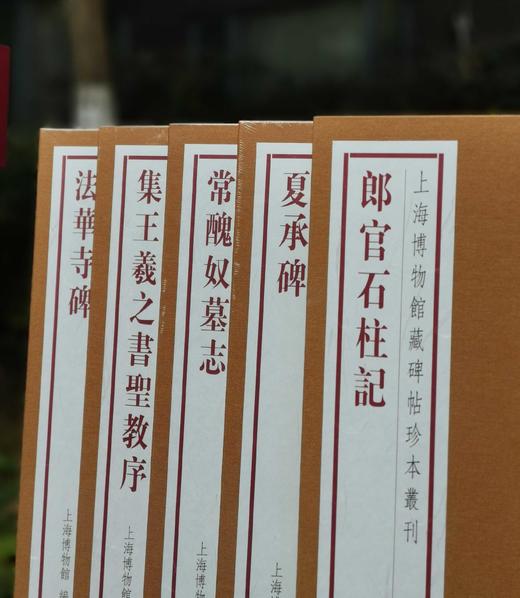 上海博物館藏碑帖珍本叢刊
郎官石柱記
夏承碑
上海博
常醜奴墓志
上海博物
集王羲之書聖教序
上海博物館
法華寺碑
上海博物館 編